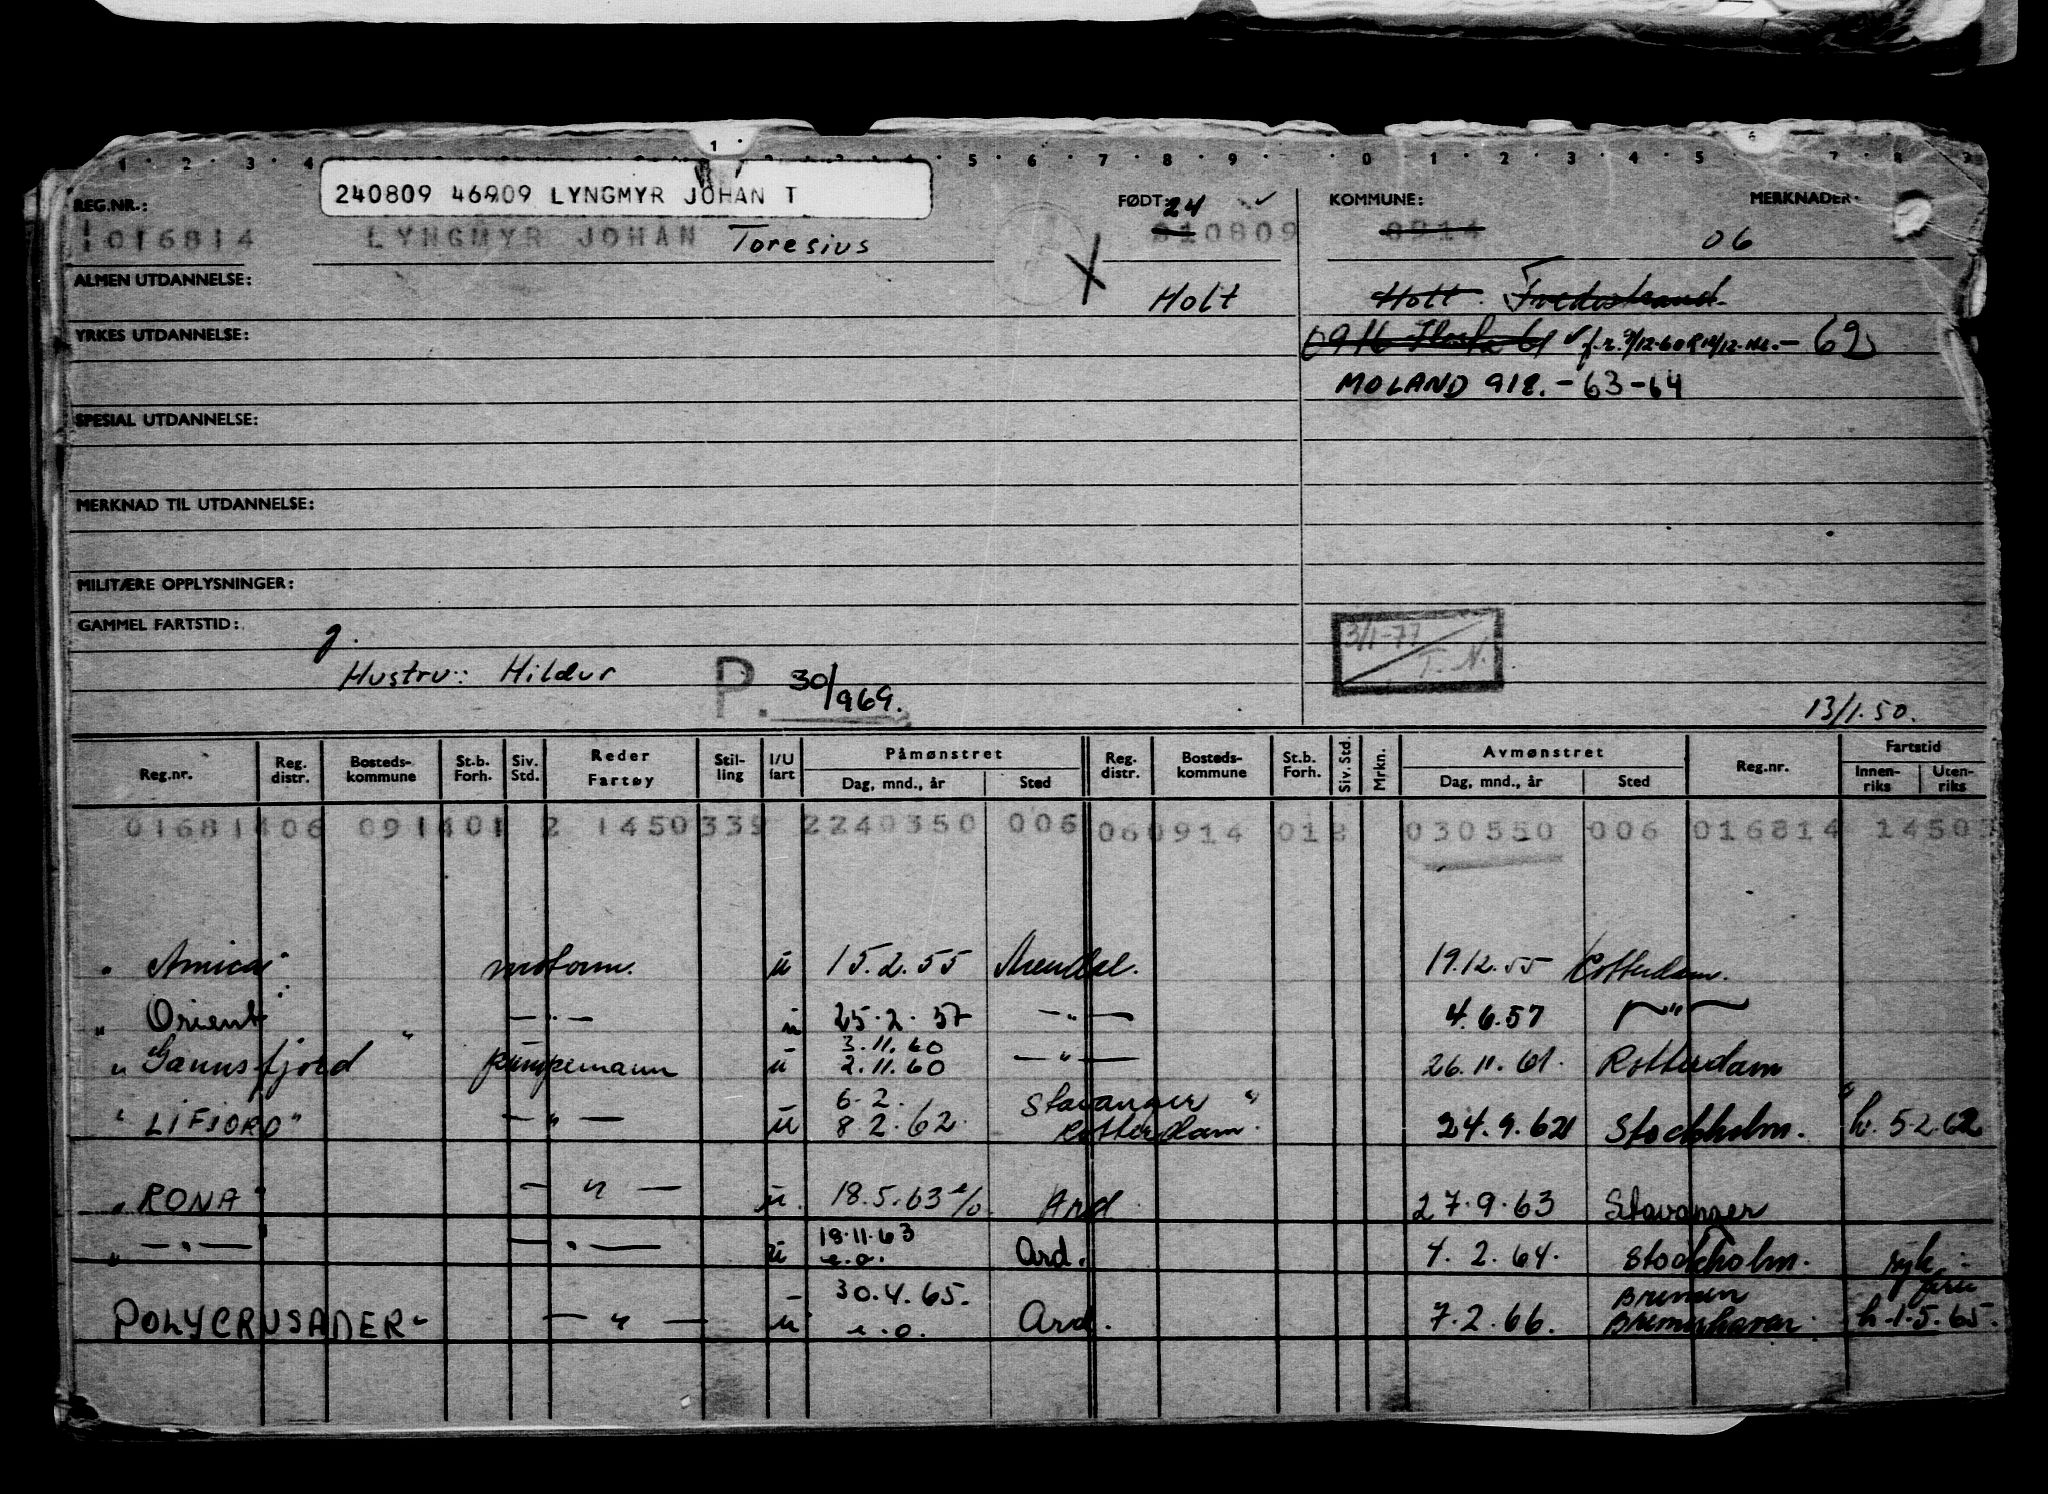 1 · 2 · 3 · 4 5 · 6 · 7 · 8 · 9 · 0 · 1 · 2 · 3 · 4 · 5 6 7 8
240809 46909 LYNGMYR JOHAN T
REG.NR.: FØDT: 24 KOMMUNE: MERKNADER:
016814 LYNGMYR JOHAN Toresius 310809 0914 06
ALMEN UTDANNELSE: Holt Holt. Tvedestrand
YRKES UTDANNELSE: 0916 61 62
MOLAND 918. - 63-64
SPESIAL UTDANNELSE:
MERKNAD TIL UTDANNELSE:
MILITÆRE OPPLYSNINGER:
GAMMEL FARTSTID: g. 3/1-77
T. N.
Hustru: Hildur P. 30/969.
13/1.50.
Reg.nr. Reg. distr. Bosteds-kommune St.b. Forh. Siv. Std. Reder Fartøy Stil-ling I/U fart Påmønstret Dag, mnd., år Sted Reg. distr. Bosteds-kommune St.b. Forh. Siv. Std. Mrkn. Avmønstret Dag, mnd., år Sted Reg.nr. Fartstid Innen-riks Uten-riks
016814 06 0914 01 2 1450 339 2 240350 006 06 0914 012 030550 006 016814 1450
" Amica" motorm. u 15.2.55 Arendal. 19.12.55 Rotterdam.
" Orient" — " — u 25.2.57 — " — 4.6.57 — " —
3.11.60
" Gannsfjord " pumpemann u 2.11.60 — " — 26.11.61. Rotterdam
6.2. Stavanger "
" LIFJORD" — " — u 8.2.62. Rotterdam. 24.9.62 Stockholm. h. 5.2.62
" RONA" — " — u. 18.5.63 e/o Ard. 27.9.63 Stavanger
18.11.63
" — " — — " — u e.o. Ard. 4.2.64. Stockholm. syk.
30.4.65. Bremen
POLYCRUSADER" — " — u e.o. Ard. 7.2.66. Bremerhaven. h. 1.5.65.